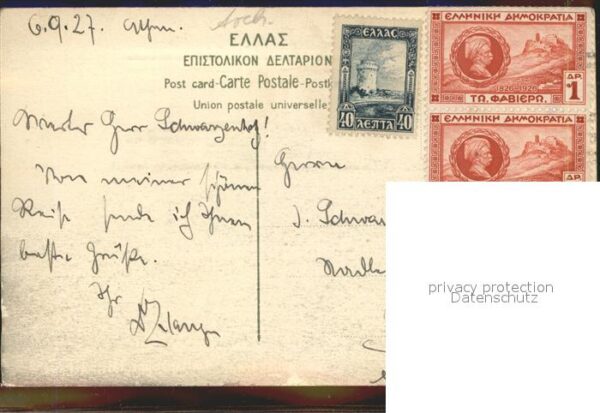 6.9.27. Athen.
ΕΛΛΑΣ
ΕΠΙΣΤΟΛΙΚΟΝ ΔΕΛΤΑΡΙΟΝ
Post card-Carte Postale-Postk
Union postale universelle
ΕΛΛΑΣ
40 ΛΕΠΤΑ 40
ΕΛΛΗΝΙΚΗ ΔΗΜΟΚΡΑΤΙΑ
1826-1926
ΔΡ.
1
ΤΩ ΦΑΒΙΕΡΩ.
ΕΛΛΗΝΙΚΗ ΔΗΜΟΚΡΑΤΙΑ
ΔΡ
Herr Schwarzenhof!
Von meiner schönen
Reise sende ich Ihnen
beste Grüße.
Ihr
Herrn
J. Schwar
privacy protection
Datenschutz